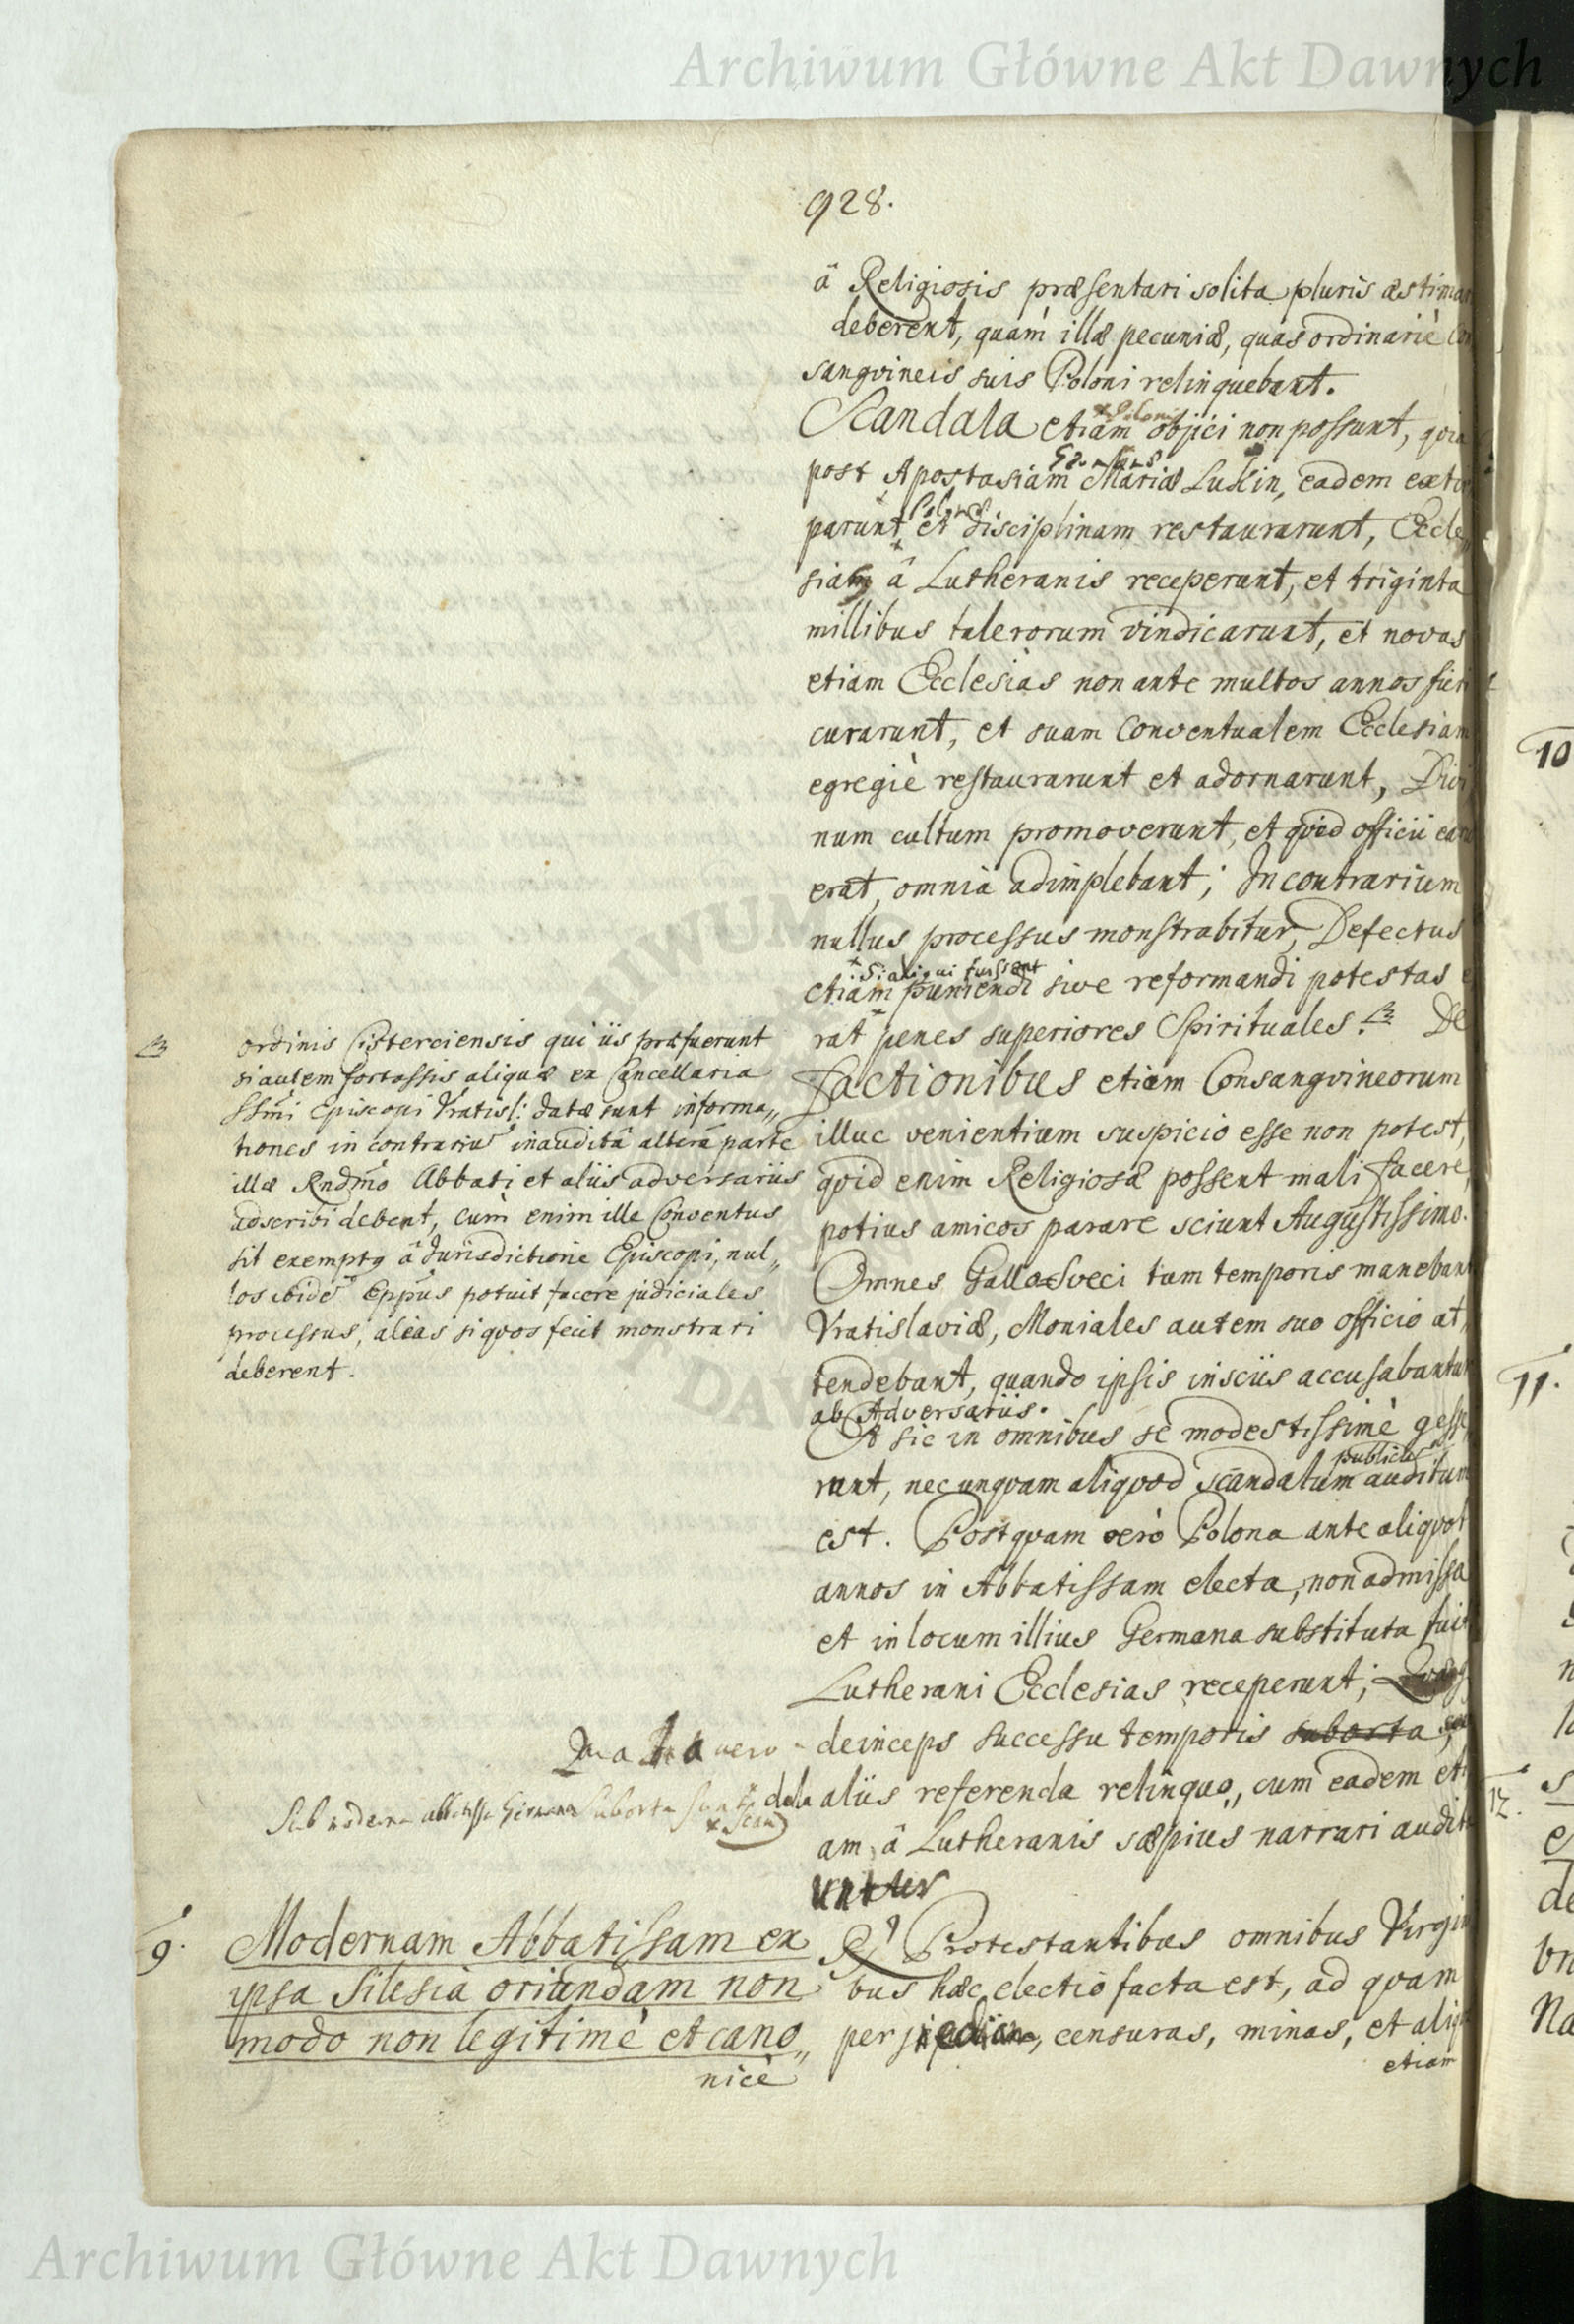 Archiwum Główne Akt Dawnych
928.
â Religiosis præsentari solita pluris æstimar
deberent, quam illæ pecuniæ, quas ordinariè con
sangvineis suis Poloni relinquebant.
+ Polonis
Scandala etiam objici non possunt, qvia
Germanæ
post Apostasiam Mariæ Luckin, eadem extir
Polonæ
parunt, et disciplinam restaurarunt, Eccle„
sias â Lutheranis receperunt, et triginta
millibus talerorum vindicarunt, et novas
etiam Ecclesias non ante multos annos fieri
curarunt, et suam Conventualem Ecclesiam
egregiè restaurarunt et adornarunt, Divi
num cultum promoverunt, et qvid officii earu
erat, omnia adimplebant; In contrarium
nullus processus monstrabitur, Defectus
+ si aliqui fuissent
etiam puniendi sive reformandi potestas e
rat penes superiores Spirituales. De
factionibus etiam Consangvineorum
illuc venientium suspicio esse non potest,
qvid enim Religiosæ possent mali facere,
potius amicos parare sciunt Augustissimo.
Omnes GalloSveci tum temporis manebant
Vratislaviæ, Moniales autem suo officio at„
tendebant, quando ipsis insciis accusabantur
ab Adversariis.
A sic in omnibus se modestissimè gesse
publicu
runt, nec unqvam aliqvod scandalum auditum
est. Postqvam verò Polona ante aliqvot
annos in Abbatissam electa, non admissa
et in locum illius Germana substituta fuit
Lutherani Ecclesias receperunt;
deinceps successu temporis suborta,
aliis referenda relinquo, cum eadem eti
am â Lutheranis sæpius narrari audi
untur
ordinis Cisterciensis qui iis præfuerunt
si autem fortassis aliquæ ex Cancellaria
Ssimi Episcopi Vratisl: datæ sunt informa„
tiones in contrariu inauditâ alterâ parte
illæ Rndmo Abbati et aliis adversariis
adscribi debent, cum enim ille Conventus
sit exemptq â Jurisdictione Episcopi, nul„
los ibide Eppus potuit facere judiciales
processus, alias si qvos fecit monstrari
deberent.
vero
Sub moderna abbatissa Germana suborta sunt
+ Scan
dala
9. Modernam Abbatissam ex
ipsa Silesia oriundam non
modo non legitimè et cano„
nicè
R Protestantibus omnibus Virgini
bus hæc electio facta est, ad qvam
per censuras, minas, et aliq
etiam
10
11.
12.
Archiwum Główne Akt Dawnych